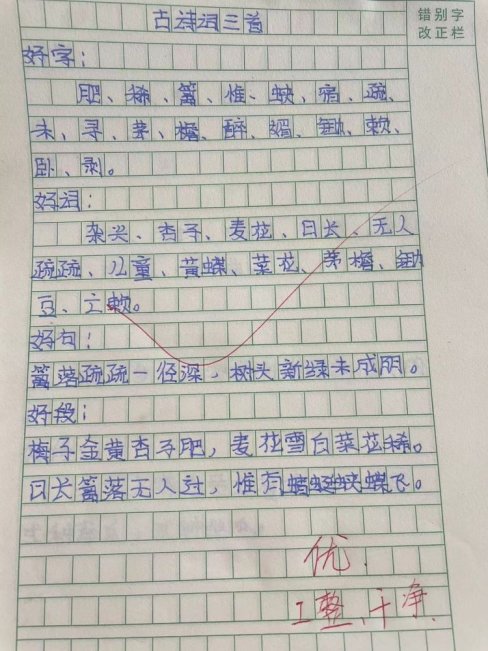 古诗词三首
错别字
改正栏
好字:
肥、稀、篱、惟、蛱、宿、疏、
未、寻、茅、檐、醉、媚、锄、赖、
卧、剥。
好词:
杂兴、杏子、麦花、日长、无人
疏疏、儿童、黄蝶、菜花、茅檐、锄
豆、亡赖。
好句:
篱落疏疏一径深,树头新绿未成阴。
好段:
梅子金黄杏子肥,麦花雪白菜花稀。
日长篱落无人过,惟有蜻蜓蛱蝶飞。
优.
工整、干净.